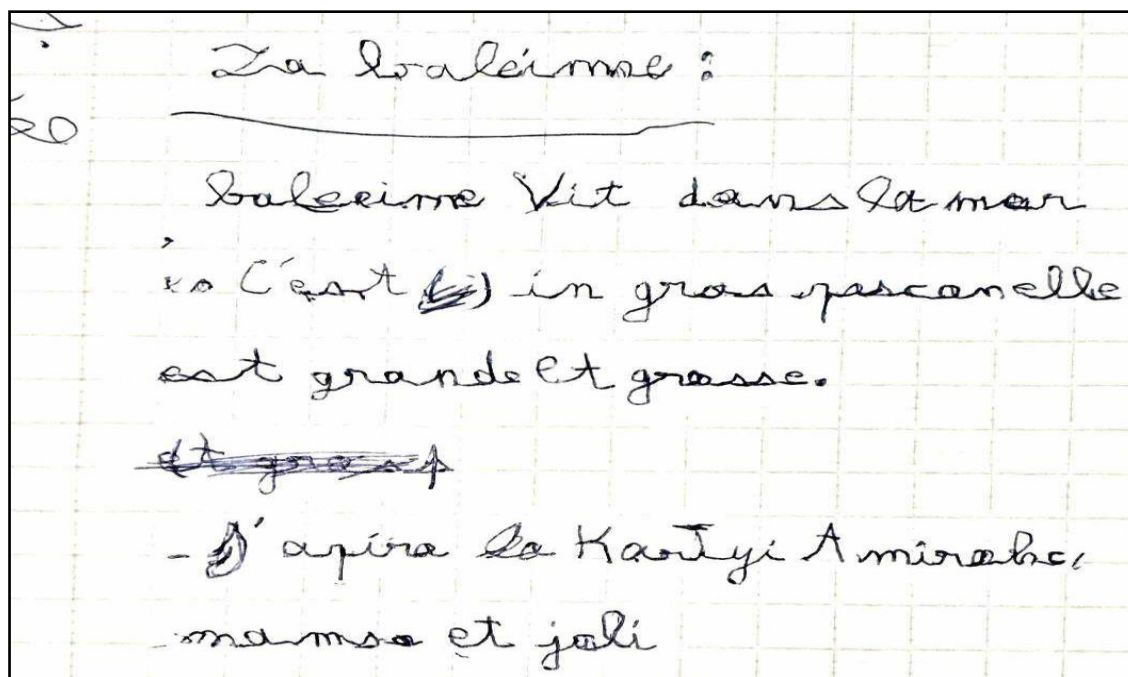 La baleinne :
baleeine Vit dans la mer
C'est in gros pascanelle
est grande et grosse.
et gross
- J' apira la Kartyi Amirabe,
mamsa et joli